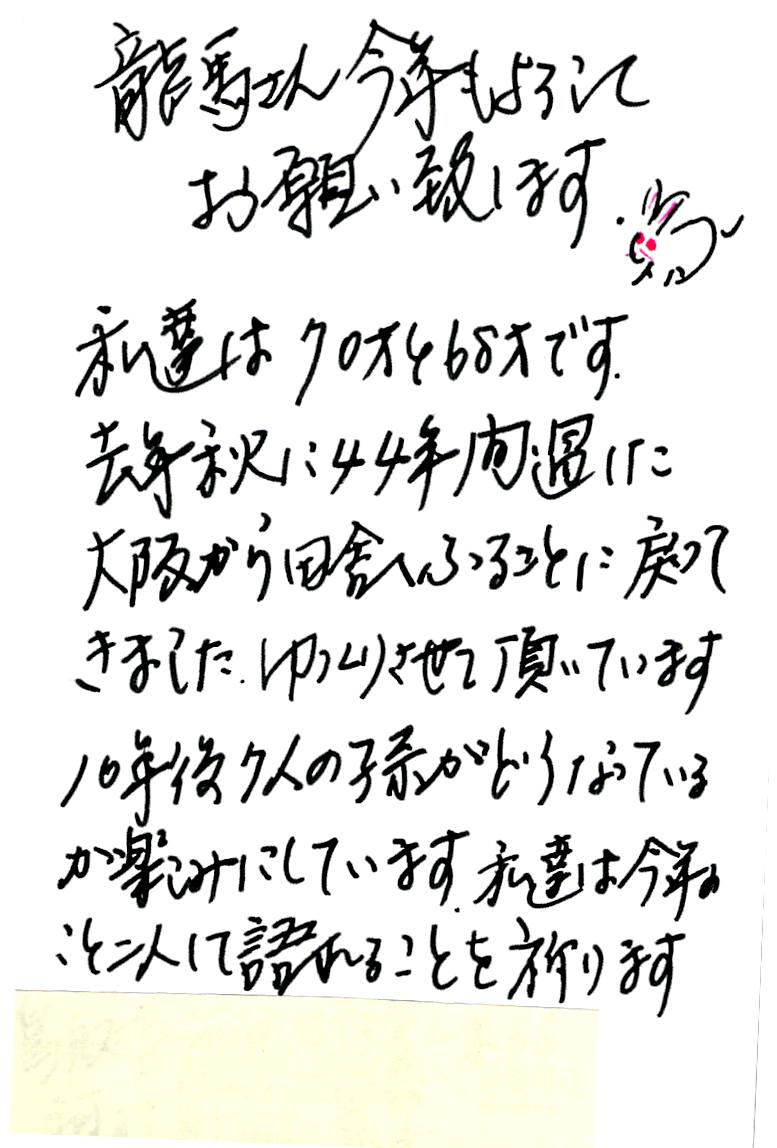 龍馬さん今年もよろしく
お願い致します
私達は70才と68才です.
去年秋に44年間過ごした
大阪から田舎へふるさとに戻って
きました.ゆっくりさせて頂いています
10年後7人の子孫がどうなっている
か楽しみにしています.私達は今年の
こと二人して語れることを祈ります